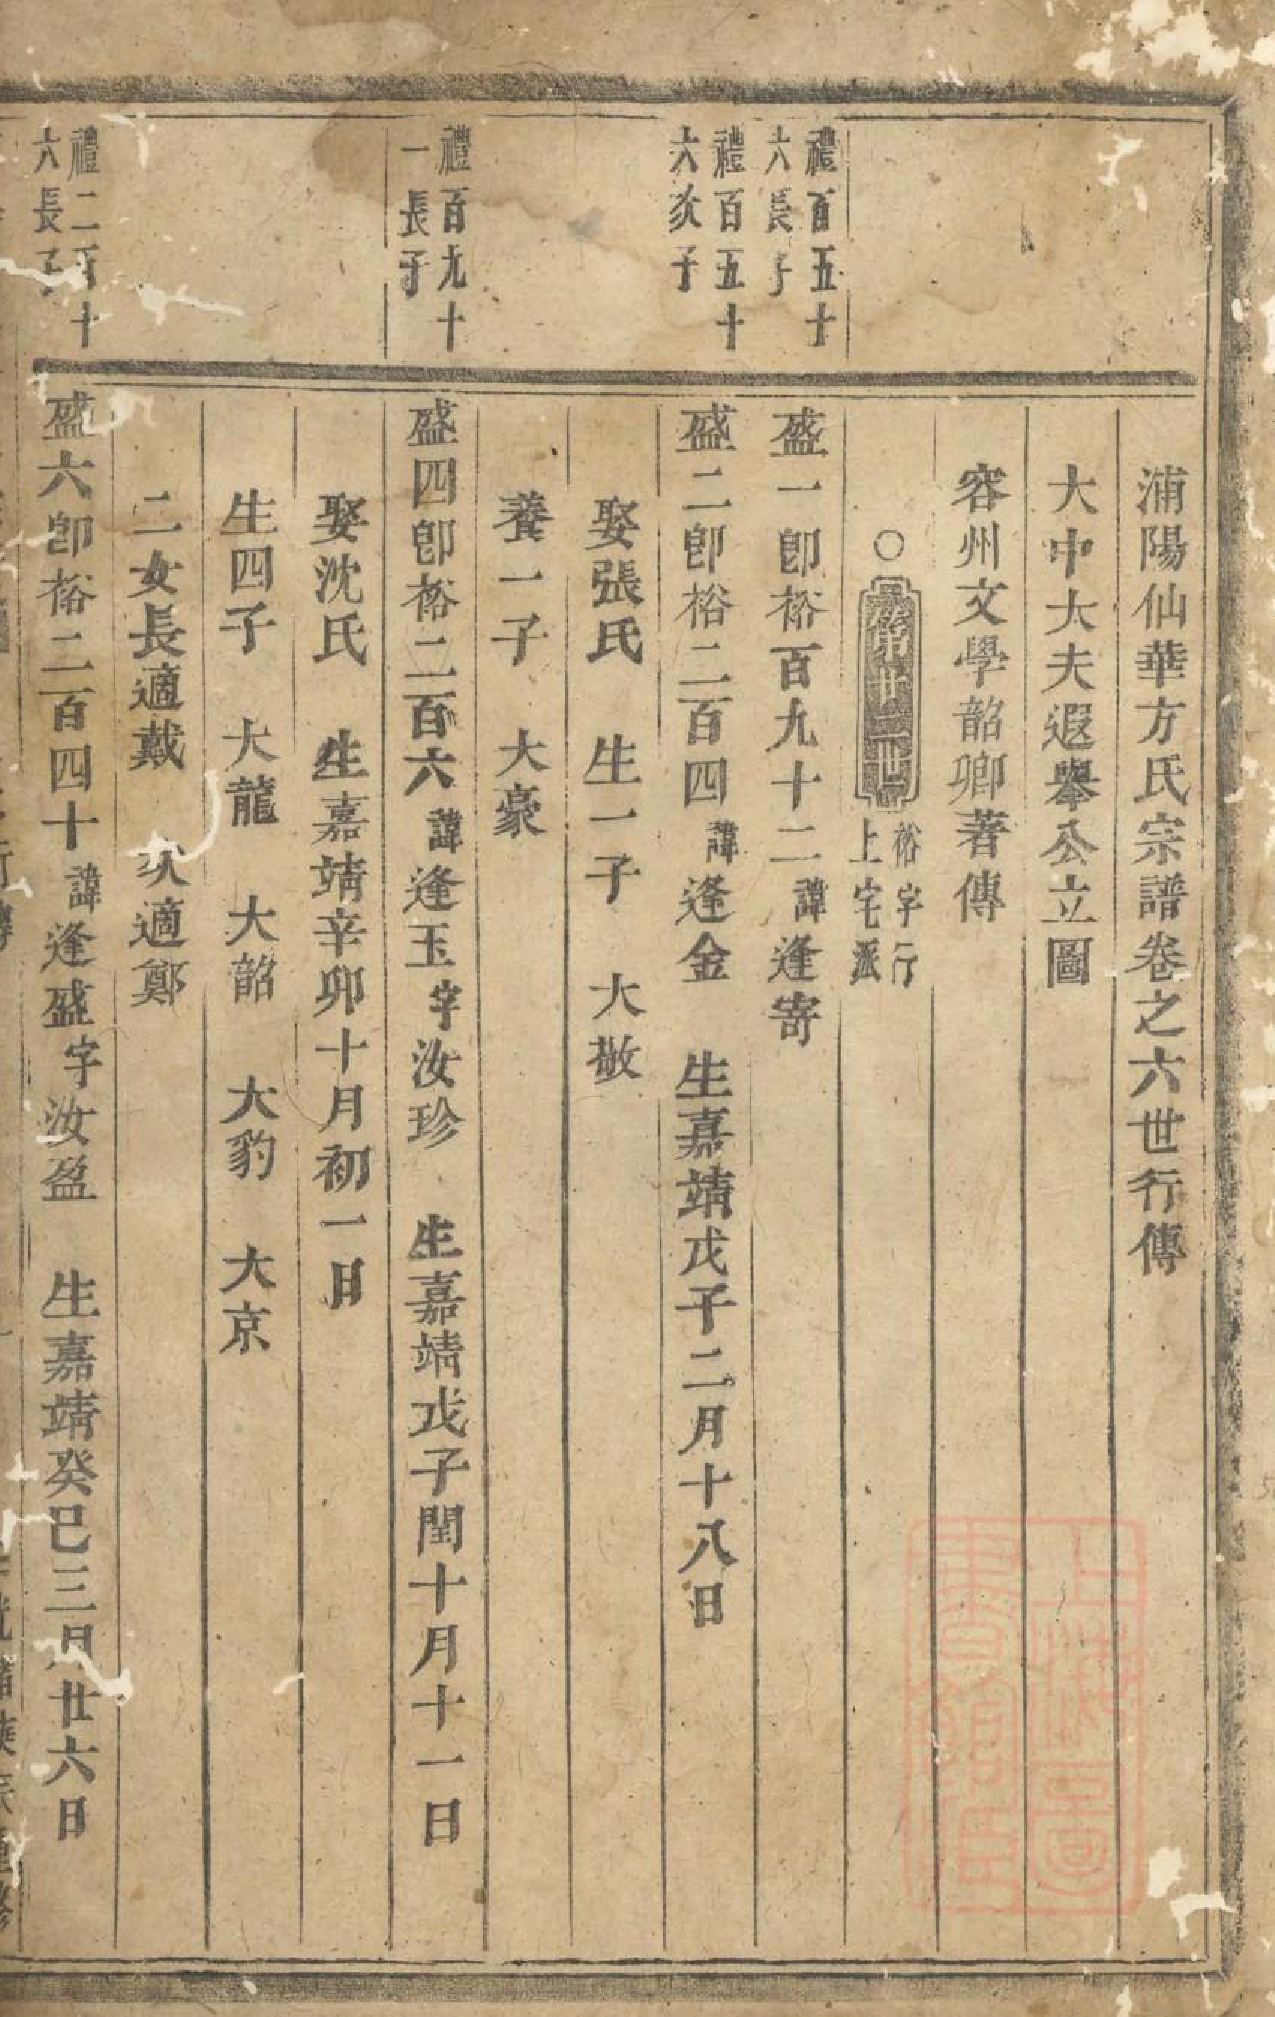 浦陽仙華方氏宗譜卷之六世行傳
大中大夫遐舉公立圖
容州文學韶卿著傳
○第廿二世 裕字行
上宅派
禮百五十
六長子
盛一卽裕百九十二諱逢寄
禮百五十
六次子
盛二卽裕二百四諱逢金 生嘉靖戊子二月十八日
娶張氏 生一子 大敬
養一子 大豪
禮百九十
一長子
盛四卽裕二百六諱逢玉字汝珍 生嘉靖戊子閏十月十一日
娶沈氏 生嘉靖辛卯十月初一日
生四子 大龍 大韶 大豹 大京
二女長適戴 次適鄭
禮二百十
六長子
盛六卽裕二百四十諱逢盛字汝盈 生嘉靖癸巳三月廿六日
上海圖
書館藏